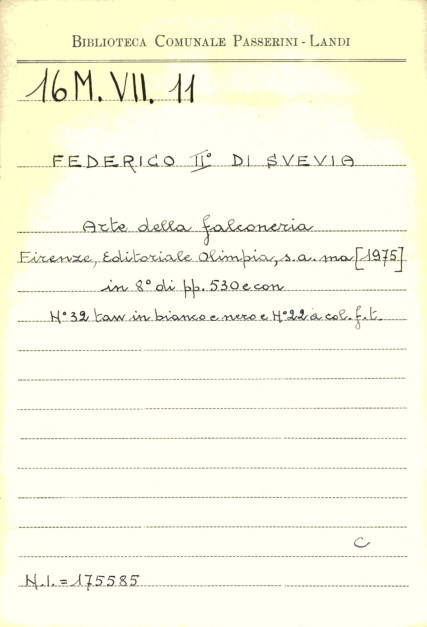 BIBLIOTECA COMUNALE PASSERINI - LANDI
16 M. VII. 11
FEDERICO II° DI SVEVIA
Arte della falconeria
Firenze, Editoriale Olimpia, s.a. ma [1975]
in 8° di pp. 530 e con
N° 32 tav in bianco e nero e N° 22 a col. f. t.
C
N.I. = 175585